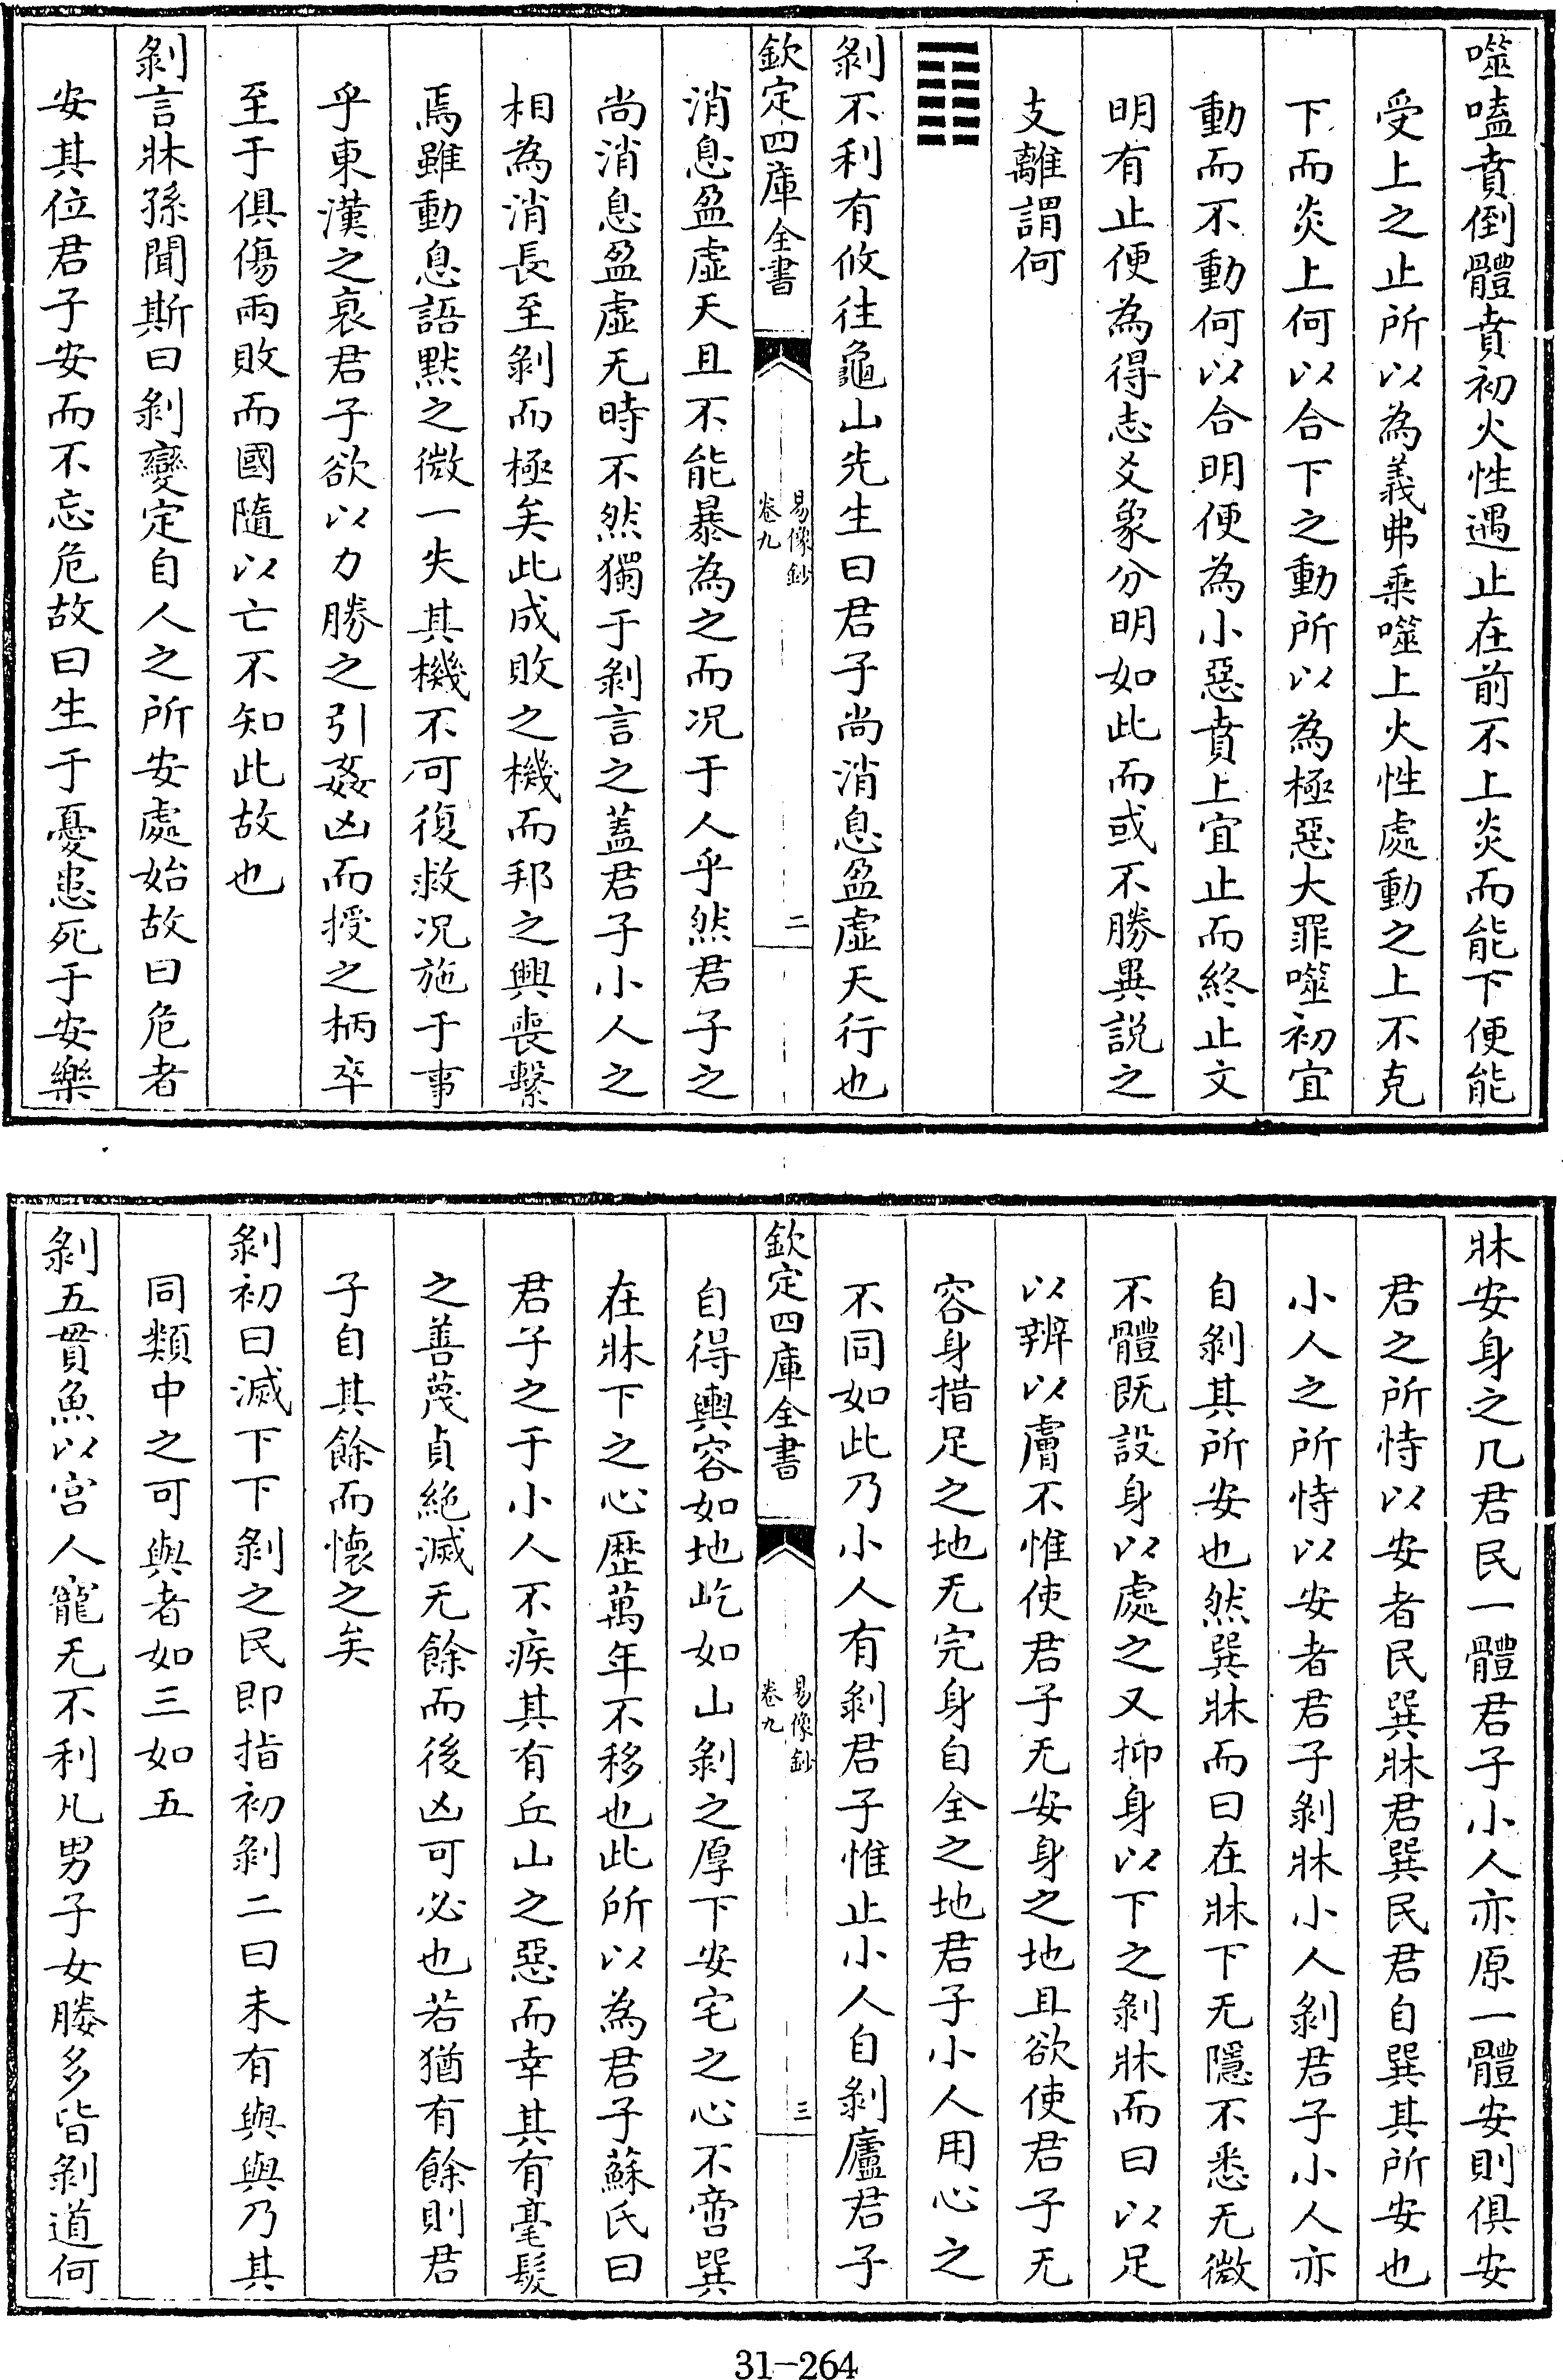 噬嗑賁倒體賁初火性遇止在前不上炎而能下便能
受上之止所以為義弗乗噬上火性處動之上不克
下而炎上何以合下之動所以為極惡大罪噬初宜
動而不動何以合明便為小惡賁上宜止而終止文
明有止便為得志爻象分明如此而或不勝異説之
支離謂何
䷖
剝不利有攸往龜山先生曰君子尚消息盈虛天行也
欽定四庫全書
易像鈔
卷九
二
消息盈虛天且不能暴為之而况于人乎然君子之
尚消息盈虛无時不然獨于剝言之葢君子小人之
相為消長至剝而極矣此成敗之機而邦之興喪繫
焉雖動息語黙之微一失其機不可復救况施于事
乎東漢之衰君子欲以力勝之引姦凶而授之柄卒
至于俱傷兩敗而國隨以亡不知此故也
剝言牀孫聞斯曰剝變定自人之所安處始故曰危者
安其位君子安而不忘危故曰生于憂患死于安樂
牀安身之几君民一體君子小人亦原一體安則俱安
君之所恃以安者民巽牀君巽民君自巽其所安也
小人之所恃以安者君子剝牀小人剝君子小人亦
自剝其所安也然巽牀而曰在牀下无隱不悉无微
不體既設身以處之又抑身以下之剝牀而曰以足
以辨以膚不惟使君子无安身之地且欲使君子无
容身措足之地无完身自全之地君子小人用心之
不同如此乃小人有剝君子惟止小人自剝廬君子
欽定四庫全書
易像鈔
卷九
三
自得輿容如地屹如山剝之厚下安宅之心不啻巽
在牀下之心歴萬年不移也此所以為君子蘇氏曰
君子之于小人不疾其有丘山之惡而幸其有毫髮
之善蔑貞絶滅无餘而後凶可必也若猶有餘則君
子自其餘而懷之矣
剝初曰滅下下剝之民即指初剝二曰未有與與乃其
同類中之可與者如三如五
剝五貫魚以宫人寵无不利凡男子女媵多皆剝道何
31-264